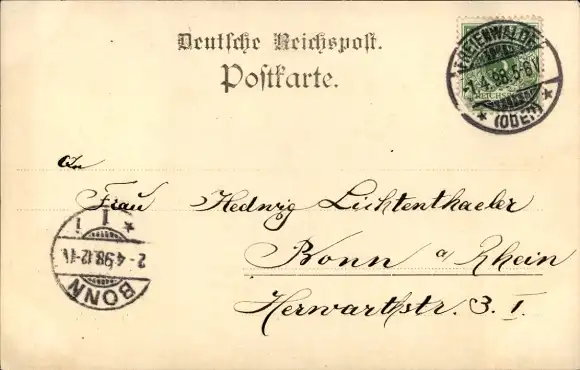 Deutsche Reichspost.
Postkarte.
FREIENWALDE
1.4.98.5-6N.
* (ODER) *
An
Frau Hedwig Lichtenthaeler
Bonn a/Rhein
Herwarthstr. 3. I.
BONN
2-4.98.12-1V.
* 1 i